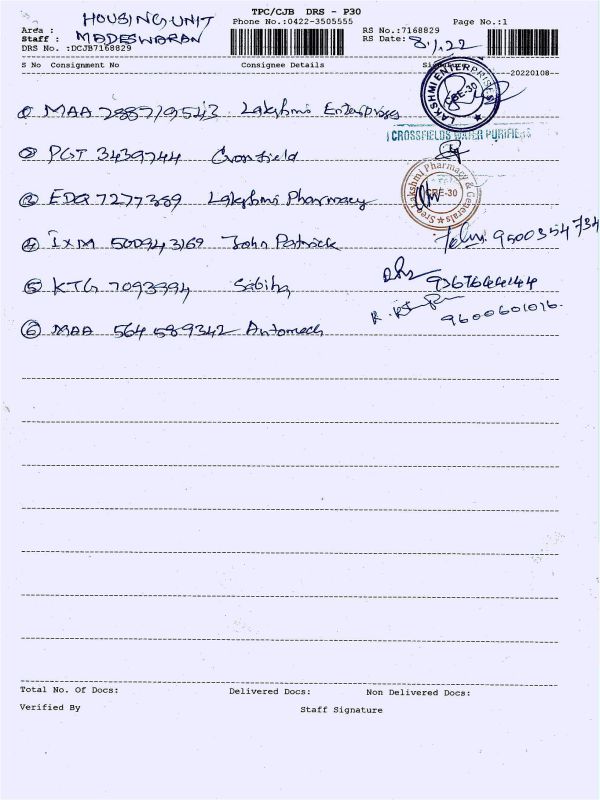 TPC/CJB DRS - P30
Area : HOUSING UNIT
Phone No.:0422-3505555
RS No.:7168829
Page No.:1
Staff : MADESWARAN
RS Date: 8.1.22
DRS No. :DCJB7168829
S No Consignment No Consignee Details
20220108
① MAA 288719543 Lakshmi Enterprises
LAKSHMI ENTERPRISES
CBE-30
CROSSFIELDS WATER PURIFIERS
② PGT 3439744 Cronfield
③ EDQ 7277389 Lakshmi Pharmacy
Sree Lakshmi Pharmacy & Generals
CBE-30
④ IXM 500943169 John Patrick
9600354734
⑤ KTG 7093994 Sabiha
9367644144
⑥ MAA 564589342 Automech
9600601016.
Total No. Of Docs: Delivered Docs: Non Delivered Docs:
Verified By Staff Signature